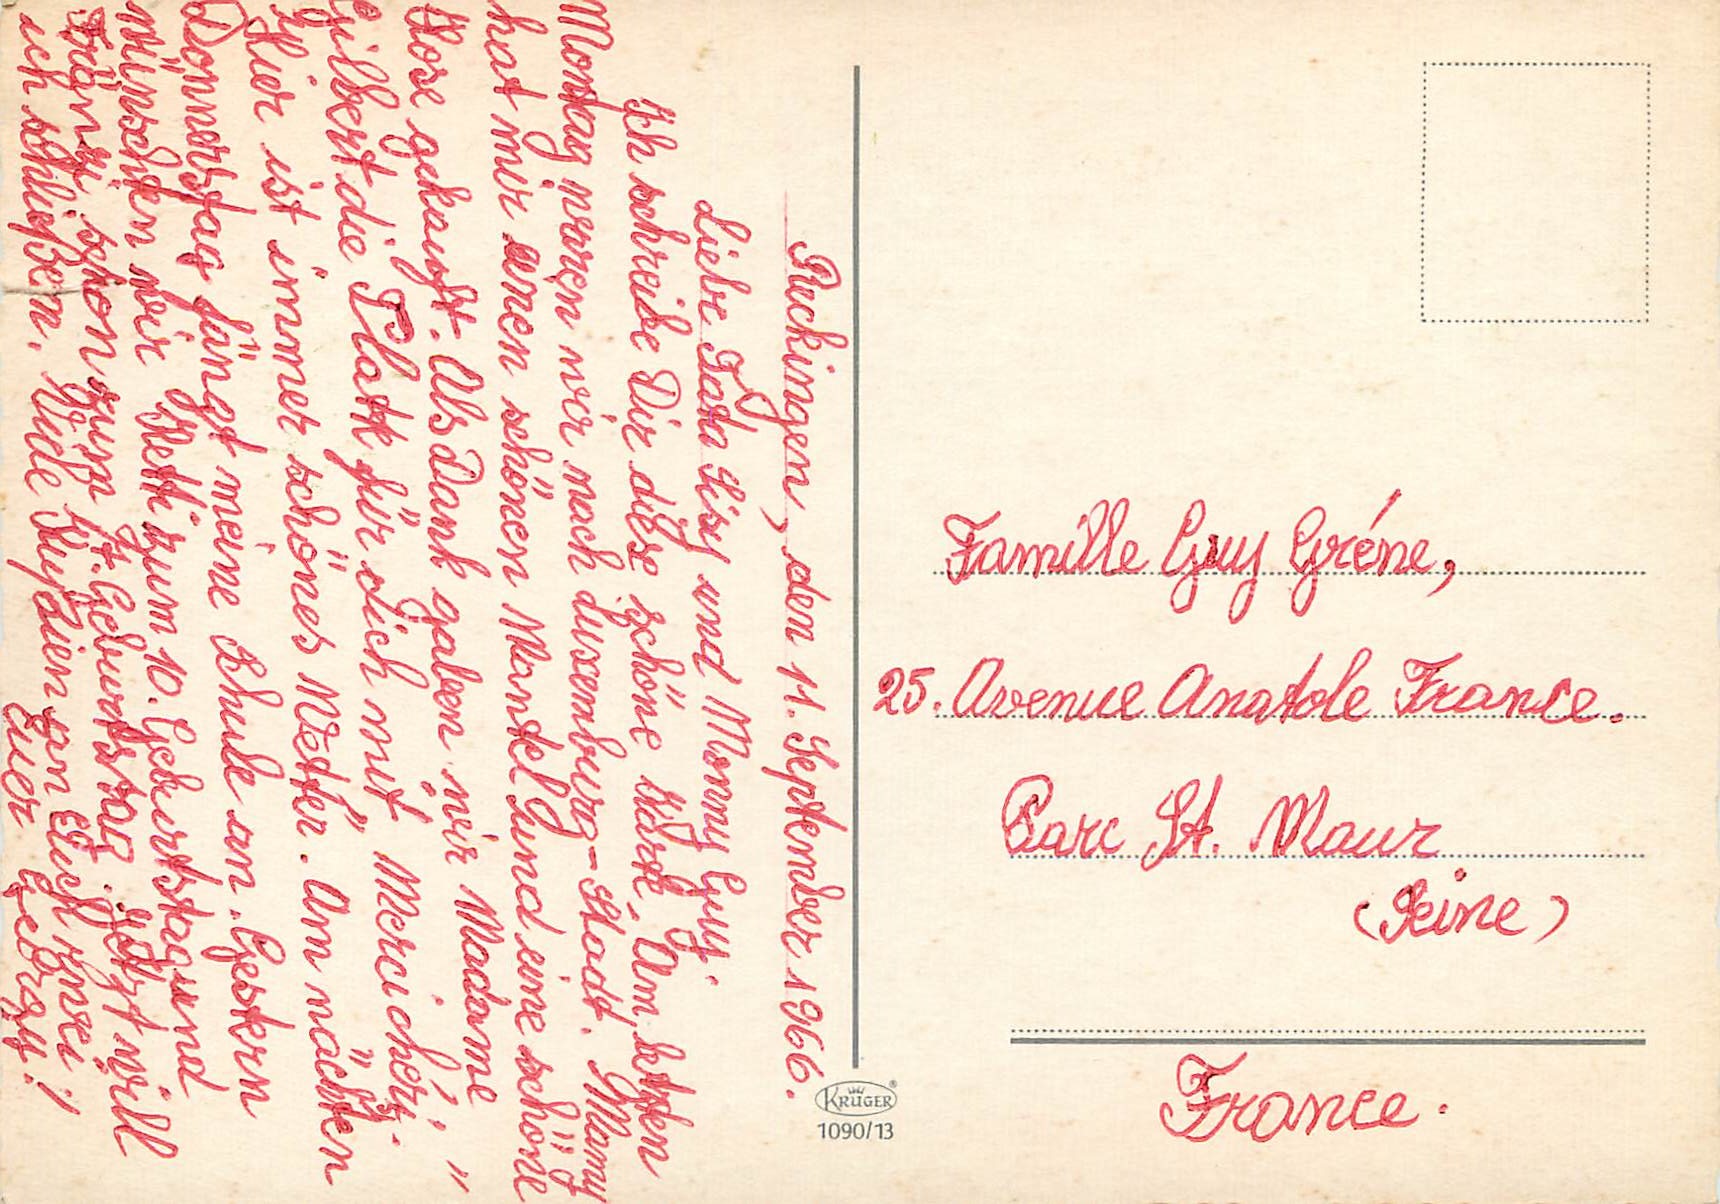 Reckingen, den 11. September 1966.
Liebe Tata Lisy und Monny Guy.
Ich schreibe Dir dies schöne Karte. Am letzten
Montag waren wir nach Luxemburg-Stadt. Mamy
hat mir einen schönen Mantel und eine schöne
Hose gekauft. Als Dank gaben wir Madame
Gilbert die Platt für dich mit. Merci chéri.
Hier ist immer schönes Wetter. Am nächsten
Donnerstag fängt meine Schule an. Gestern
wünschten wir Netti zum 10. Geburtstag und
Fränzi schon zum 7. Geburtstag. Jetzt will
ich schließen. Viele Küßien an Euch zwei!
Euer Georgy!
Famille Guy Gréne,
25. Avenue Anatole France.
Parc St. Maur
(Seine)
France.
KRÜGER®
1090/13